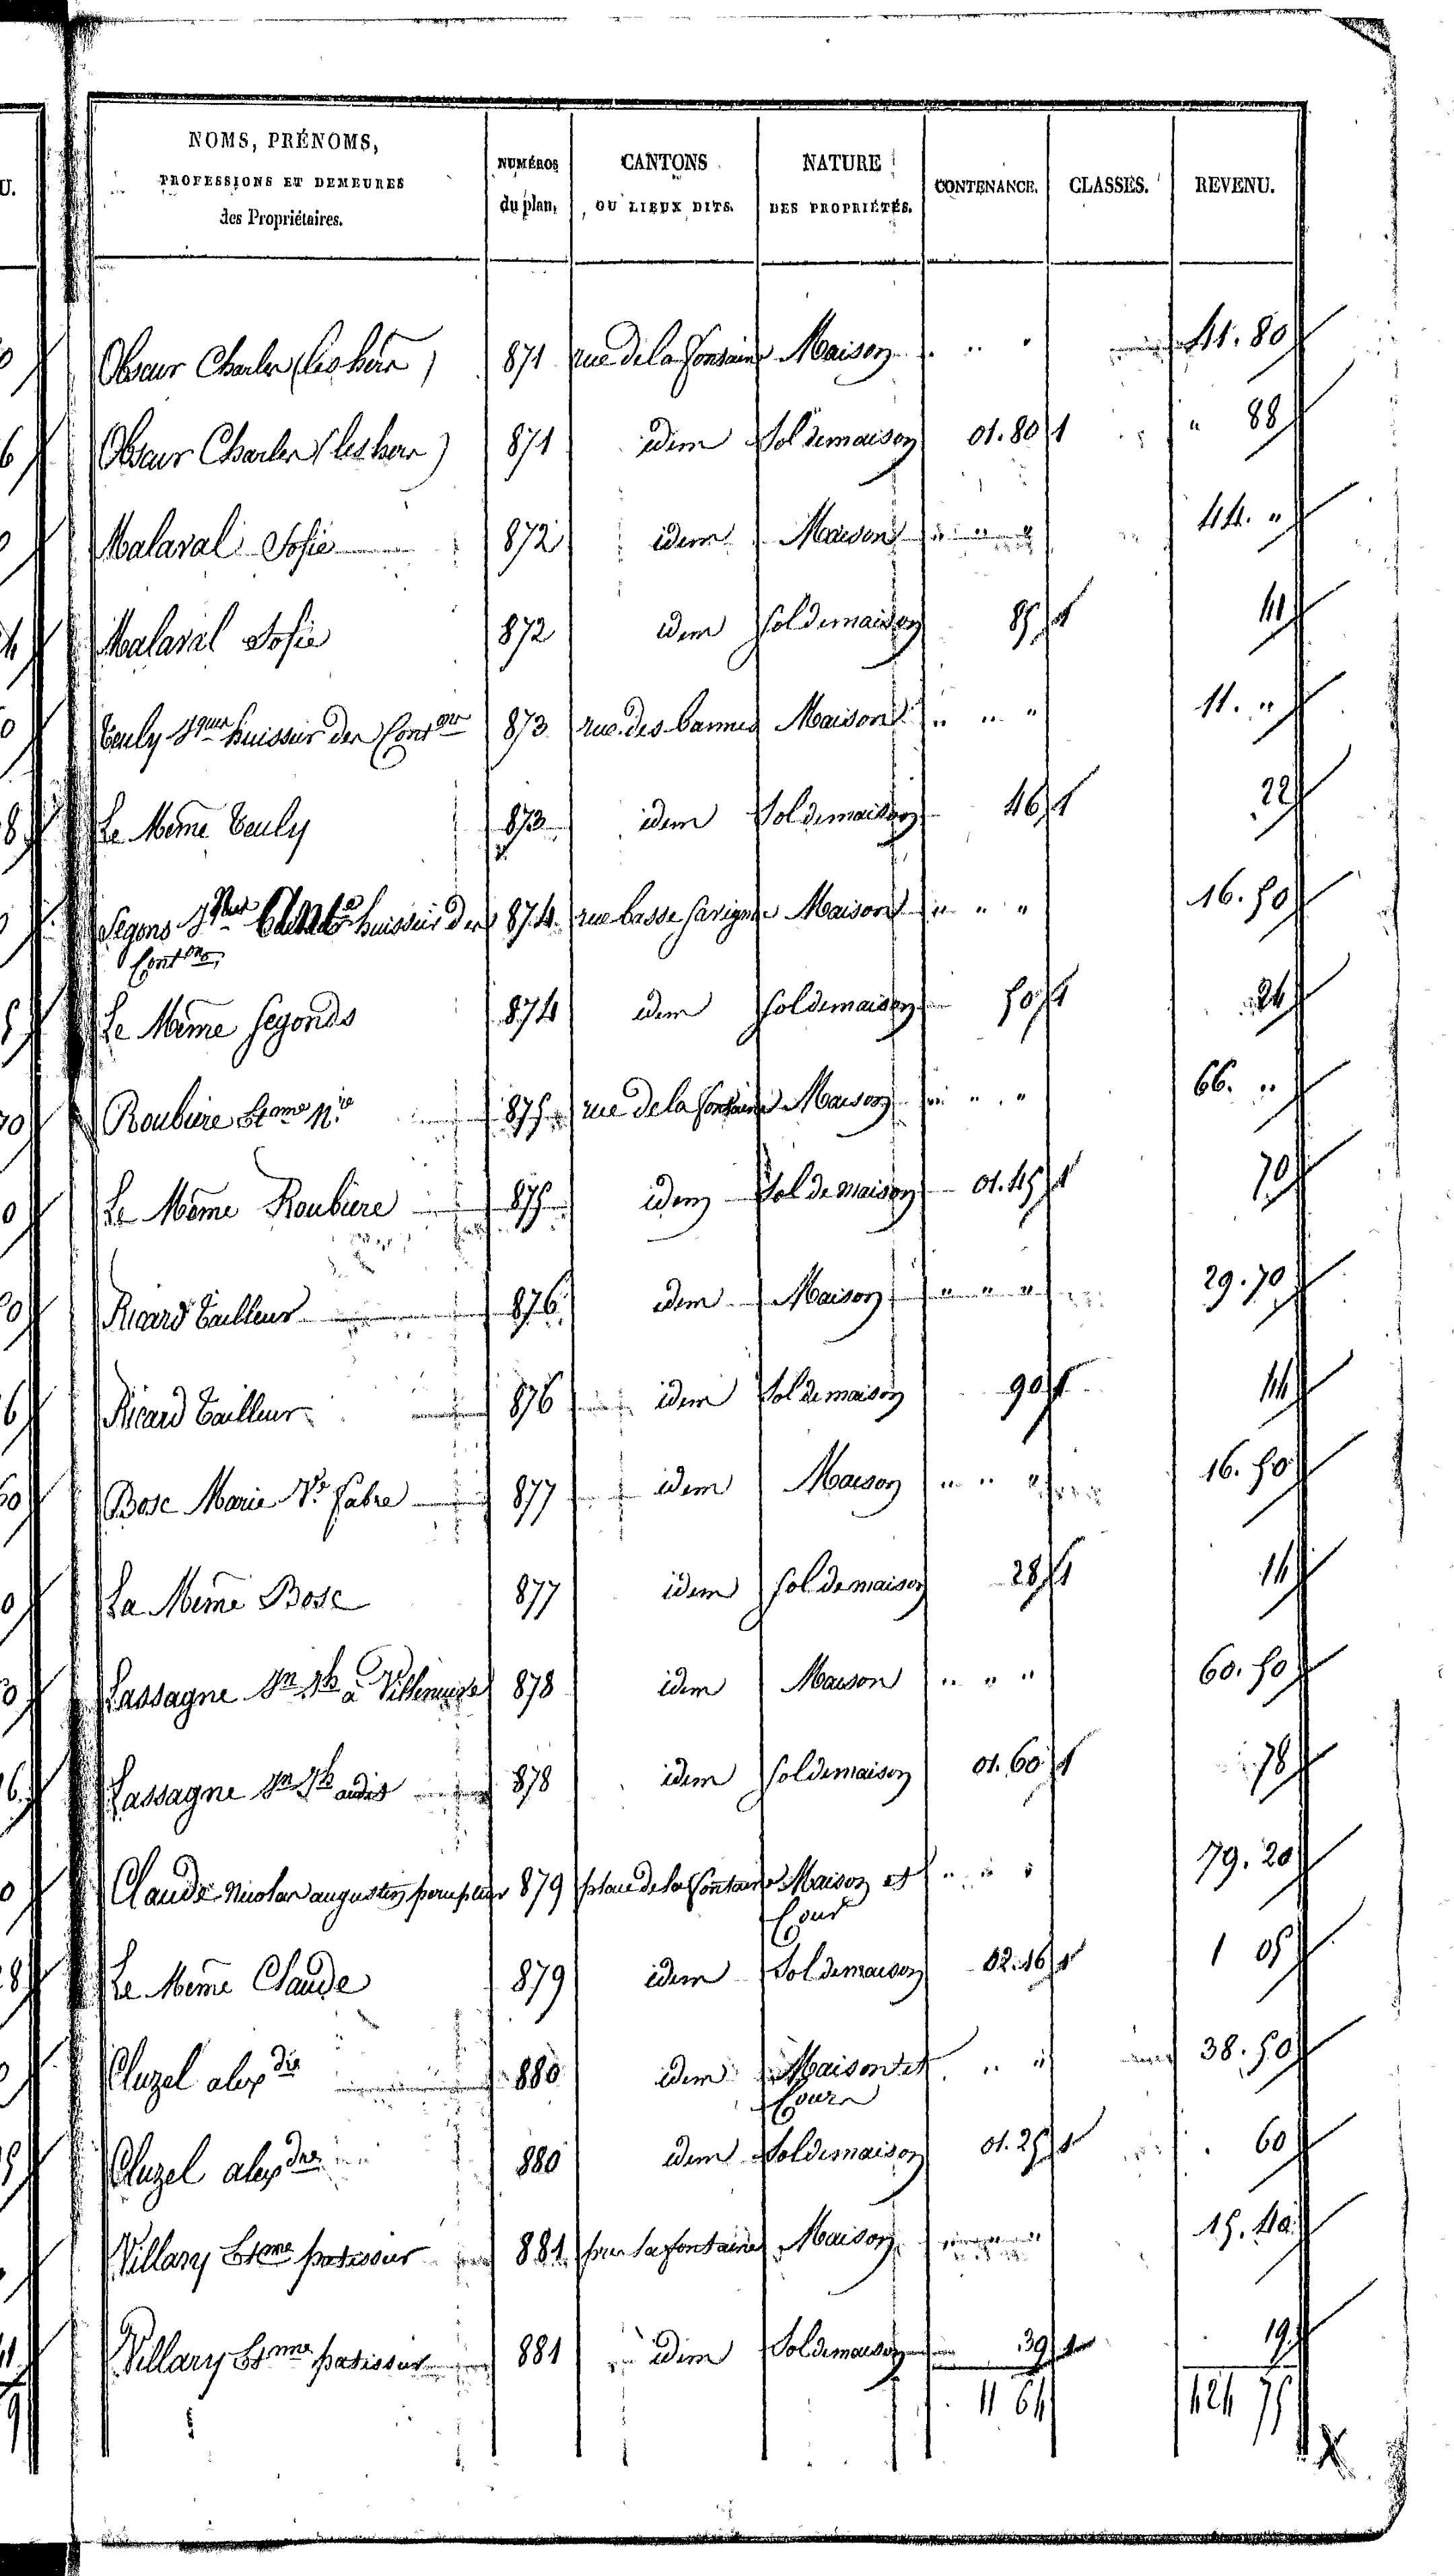 U.
NOMS, PRÉNOMS,
PROFESSIONS ET DEMEURES
des Propriétaires.
NUMÉROS
du plan,
CANTONS
OU LIEUX DITS.
NATURE
DES PROPRIÉTÉS.
CONTENANCE.
CLASSES.
REVENU.
Obseur Charles (les hérs) 871 rue de la fontaine Maison " " " 41.80
Obseur Charles (les hers) 871 idem Sol de maison 01.80 1 " 88
Malaval Sofie 872 idem Maison " " " 44. "
Malaval Sofie 872 idem Sol de maison 85 1 41
Teuly huissier des Cont 873 rue des bannes Maison " " " 11. "
Le Même Teuly 873 idem Sol de maison 46 1 22
Segons huissier des 874 rue basse Savigne Maison " " " 16.50
Contons
Le Même Segonds 874 idem Sol de maison 50 1 24
Roubiere Etme 875 rue de la fontaine Maison " " " 66. "
Le Même Roubiere 875 idem Sol de maison 01.45 1 70
Ricard tailleur 876 idem Maison " " " 29.70
Ricard tailleur 876 idem Sol de maison 90 1 44
Bosc Marie Ve fabre 877 idem Maison " " " 16.50
La Même Bosc 877 idem Sol de maison 28 1 14
Lassagne Jn Jh à Villeneuve 878 idem Maison " " " 60.50
Lassagne Jn Jh audit 878 idem Sol de maison 01.60 1 78
Claude Nicolas augustin 879 place de la fontaine Maison et " " " 79.20
Cour
Le Même Claude 879 idem Sol de maison 02.16 1 1 05
Cluzel alexdre 880 idem Maison et " " 38.50
Cour
Cluzel alexdre 880 idem Sol de maison 01.25 1 60
Villary Etme patissier 881 la fontaine Maison " " " 15.40
Villary Etme patissier 881 idem Sol de maison 39 1 19
11 64 424 75
X